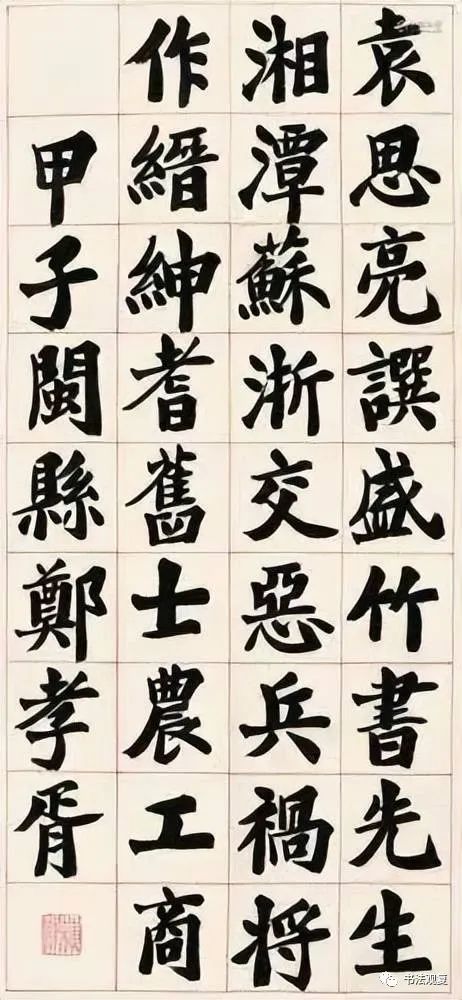 袁思亮譔盛竹書先生
湘潭蘇浙交惡兵禍将
作縉紳耆舊士農工商
甲子閩縣鄭孝胥
书法观复